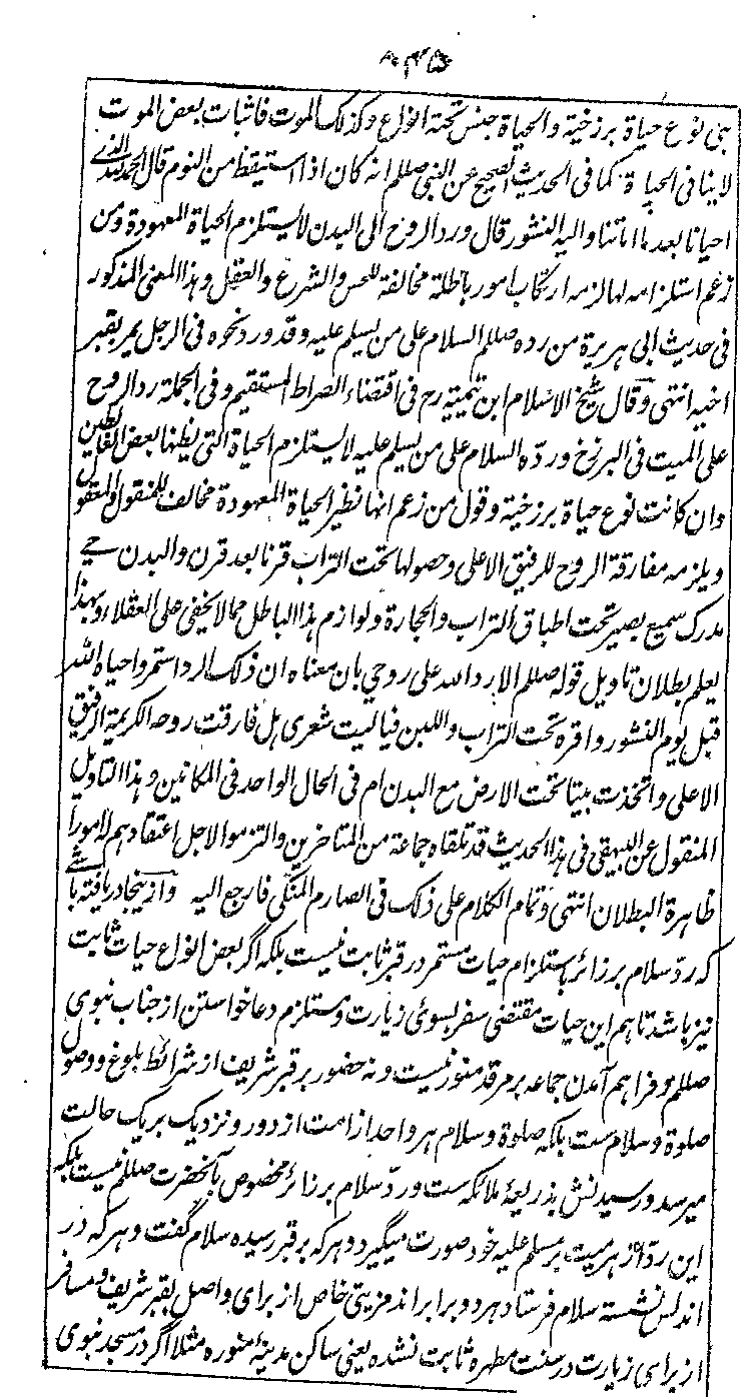 ۸۴۵
ہی نوع حیاة برزخیة والحیاة جنس تحتة انواع وکذلک الموت فاثبات بعض الموت
لاینافی الحیاة کما فی الحدیث الصحیح عن النبی صللم انہ کان اذا استیقظ من النوم قال الحمد للہ الذے
احیانا بعد ما اماتنا والیہ النشور قال ورد الروح الی البدن لایستلزم الحیاة المعہودة ومن
زعم استلزامہ لہا لزمہ ارتکاب امور باطلة مخالفة للحس والشرع والعقل وہذا المعنی المذکور
فی حدیث ابی ہریرة من ردہ صللم السلام علی من یسلم علیہ وقد ورد نحوہ فی الرجل یمر بقبر
اخیہ انتہی وقال شیخ الاسلام ابن تیمیة رح فی اقتضاء الصراط المستقیم وفی الجملة رد الروح
علی المیت فی البرزخ وردہ السلام علی من یسلم علیہ لایستلزم الحیاة التی یظنہا بعض الغالطین
وان کانت نوع حیاة برزخیة وقول من زعم انہا نظیر الحیاة المعہودة مخالف للمنقول والمعقول
ویلزمہ مفارقة الروح للرفیق الاعلی وحصولہا تحت التراب قرنا بعد قرن والبدن حے
مدرک سمیع بصیر تحت اطباق التراب والحجارة ولوازم ہذا الباطل مما لایخفی علی العقلاء وبہذا
یعلم بطلان تاویل قولہ صللم الا رد اللہ علی روحی بان معناہ ان ذلک الرد استمر واحیاہ اللہ
قبل یوم النشور واقرہ تحت التراب واللبن فیالیت شعری ہل فارقت روحہ الکریمة الرفیق
الاعلی واتخذت بیتا تحت الارض مع البدن ام فی الحال الواحد فی المکانین وہذا التاویل
المنقول عن البیہقی فی ہذا الحدیث قد تلقاہ جماعة من المتاخرین والتزموا لاجل اعتقادہم لہ امورا
ظاہرة البطلان انتہی وتمام الکلام علی ذلک فی الصارم المنکی فارجع الیہ وازینجا دریافتہ باشے
کہ ردّ سلام بر زائر باستلزام حیات مستمر در قبر ثابت نیست بلکہ اگر بعض انواع حیات ثابت
نیز باشد تاہم این حیات مقتضی سفر بسوئ زیارت ومستلزم دعا خواستن از جناب نبوی
صللم وفراہم آمدن جماعہ بر مرقد منور نیست ونہ حضور بر قبر شریف از شرائط بلوغ ووصول
صلوة وسلام ست بلکہ صلوة وسلام ہر واحد از امت از دور ونزدیک بر یک حالت
میرسد ورسیدنش بذریعۂ ملائکہ ست وردّ سلام بر زائر مخصوص بآنحضرت صللم نیست بلکہ
این ردّ از ہر میت بر مسلم علیہ خود صورت میگیرد وہر کہ بر قبر رسیدہ سلام گفت وہر کہ در
اندلس نشستہ سلام فرستاد ہر دو برابر اند مزیتی خاص از برای واصل بقبر شریف ومسافر
از برای زیارت در سنت مطہرہ ثابت نشدہ یعنی ساکن مدینۂ منورہ مثلا اگر در مسجد نبوی